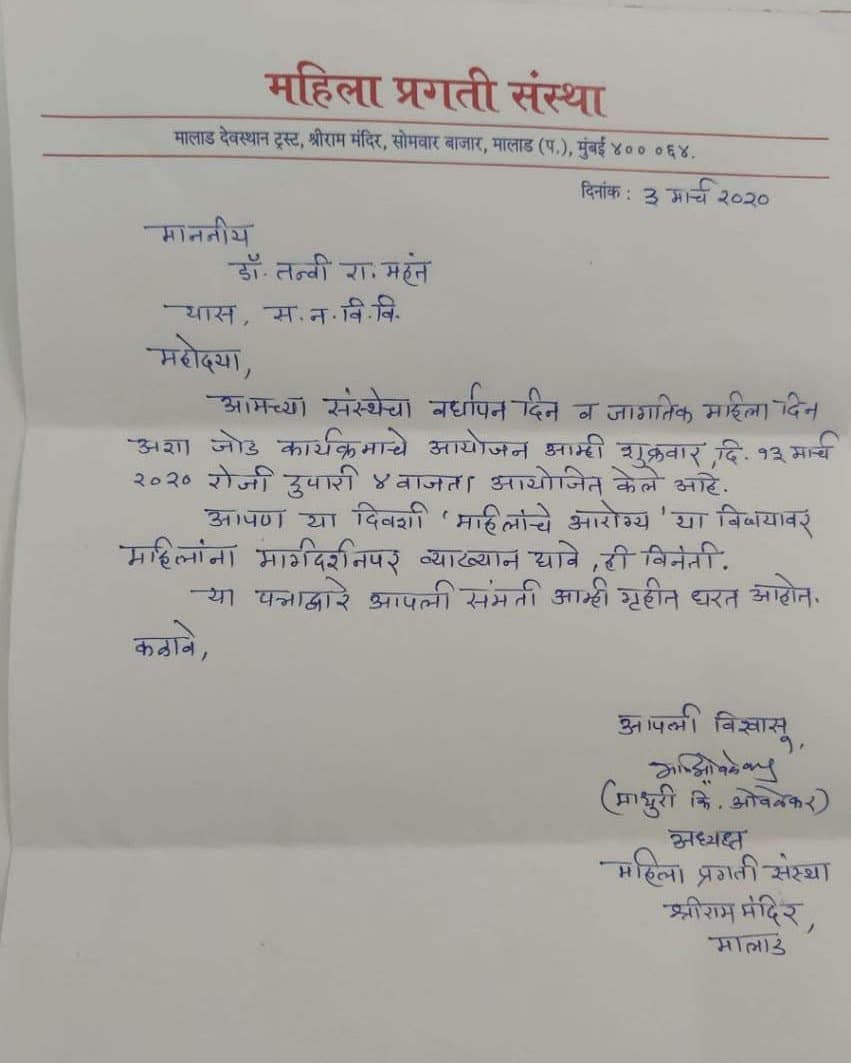 महिला प्रगती संस्था
मालाड देवस्थान ट्रस्ट, श्रीराम मंदिर, सोमवार बाजार, मालाड (प.), मुंबई ४०० ०६४.
दिनांक : ३ मार्च २०२०
माननीय
डॉ. तन्वी रा. महंत
यास, स.न.वि.वि.
महोदया,
आमच्या संस्थेचा वर्धापन दिन व जागतिक महिला दिन
अशा जोड कार्यक्रमाचे आयोजन आम्ही शुक्रवार, दि. १३ मार्च
२०२० रोजी दुपारी ४ वाजता आयोजित केले आहे.
आपण या दिवशी 'महिलांचे आरोग्य' या विषयावर
महिलांना मार्गदर्शनपर व्याख्यान द्यावे, ही विनंती.
या पत्राद्वारे आपली संमती आम्ही गृहीत धरत आहोत.
कळावे,
आपली विश्वासू,
(माधुरी कि. ओवळेकर)
अध्यक्ष
महिला प्रगती संस्था
श्रीराम मंदिर,
मालाड